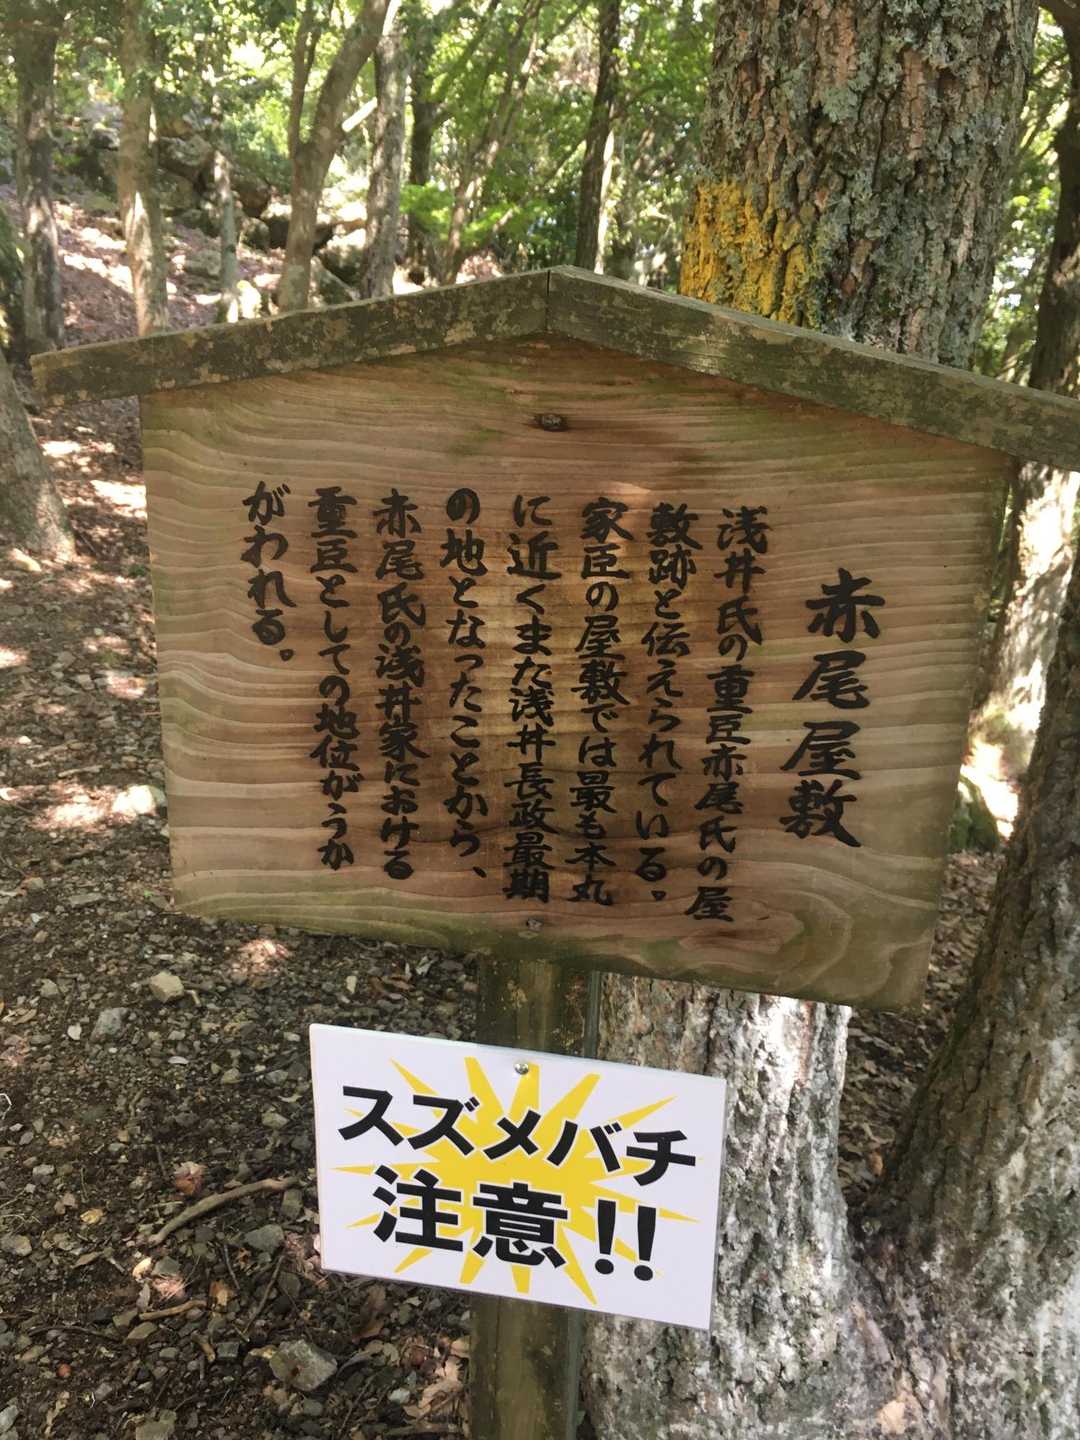 赤尾屋敷
浅井氏の重臣赤尾氏の屋
敷跡と伝えられている。
家臣の屋敷では最も本丸
に近くまた浅井長政最期
の地となったことから、
赤尾氏の浅井家における
重臣としての地位がうか
がわれる。
スズメバチ
注意!!